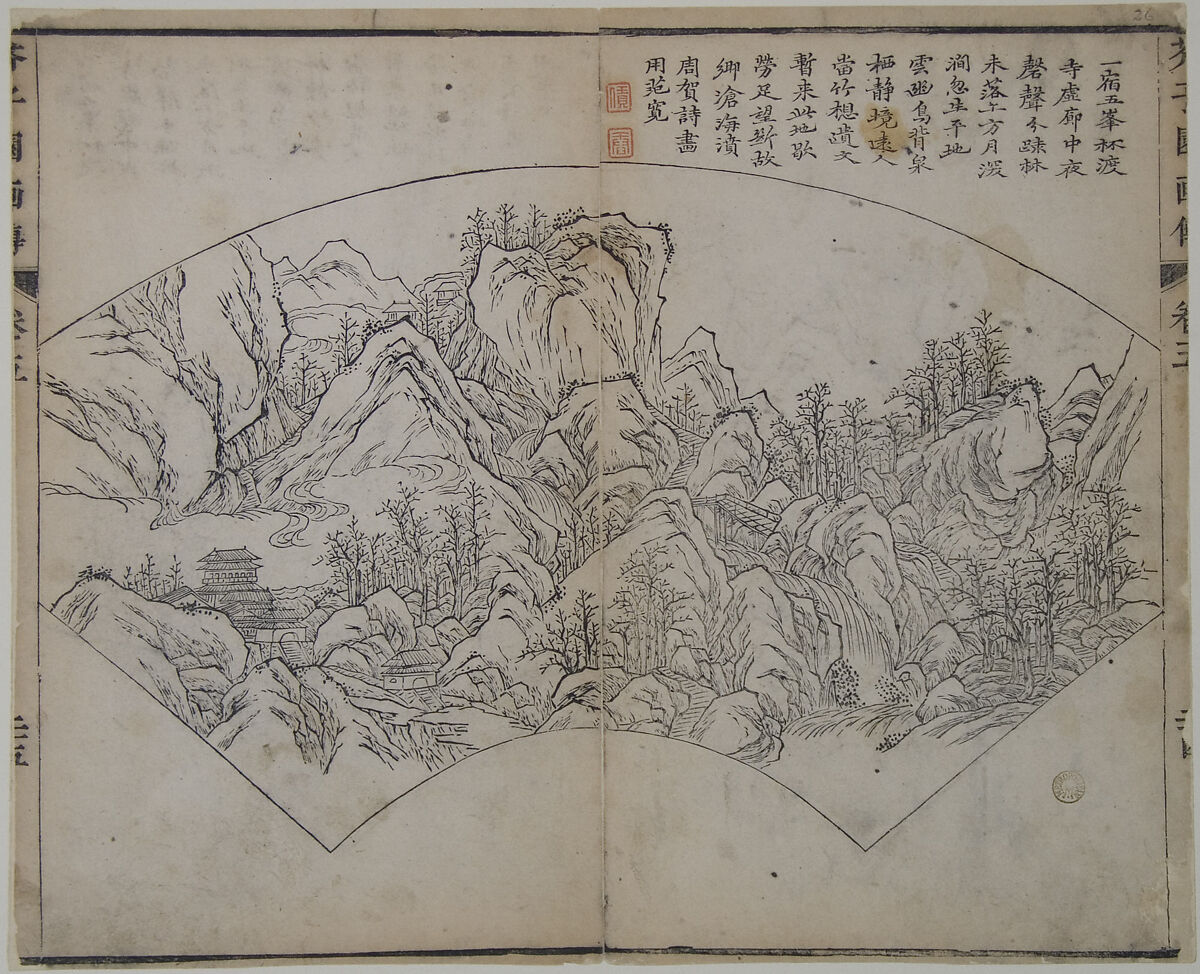 26
芥子園画傳
卷三
一宿五峯杯渡
寺虛廊中夜
磬聲分踈林
未落上方月深
澗忽生平地
雲幽鳥背泉
栖静境遠人
當竹想遺文
暫来此地歇
勞足望斷故
鄉滄海濆
周賀詩畫
用范寬
芥子園画傳
卷三